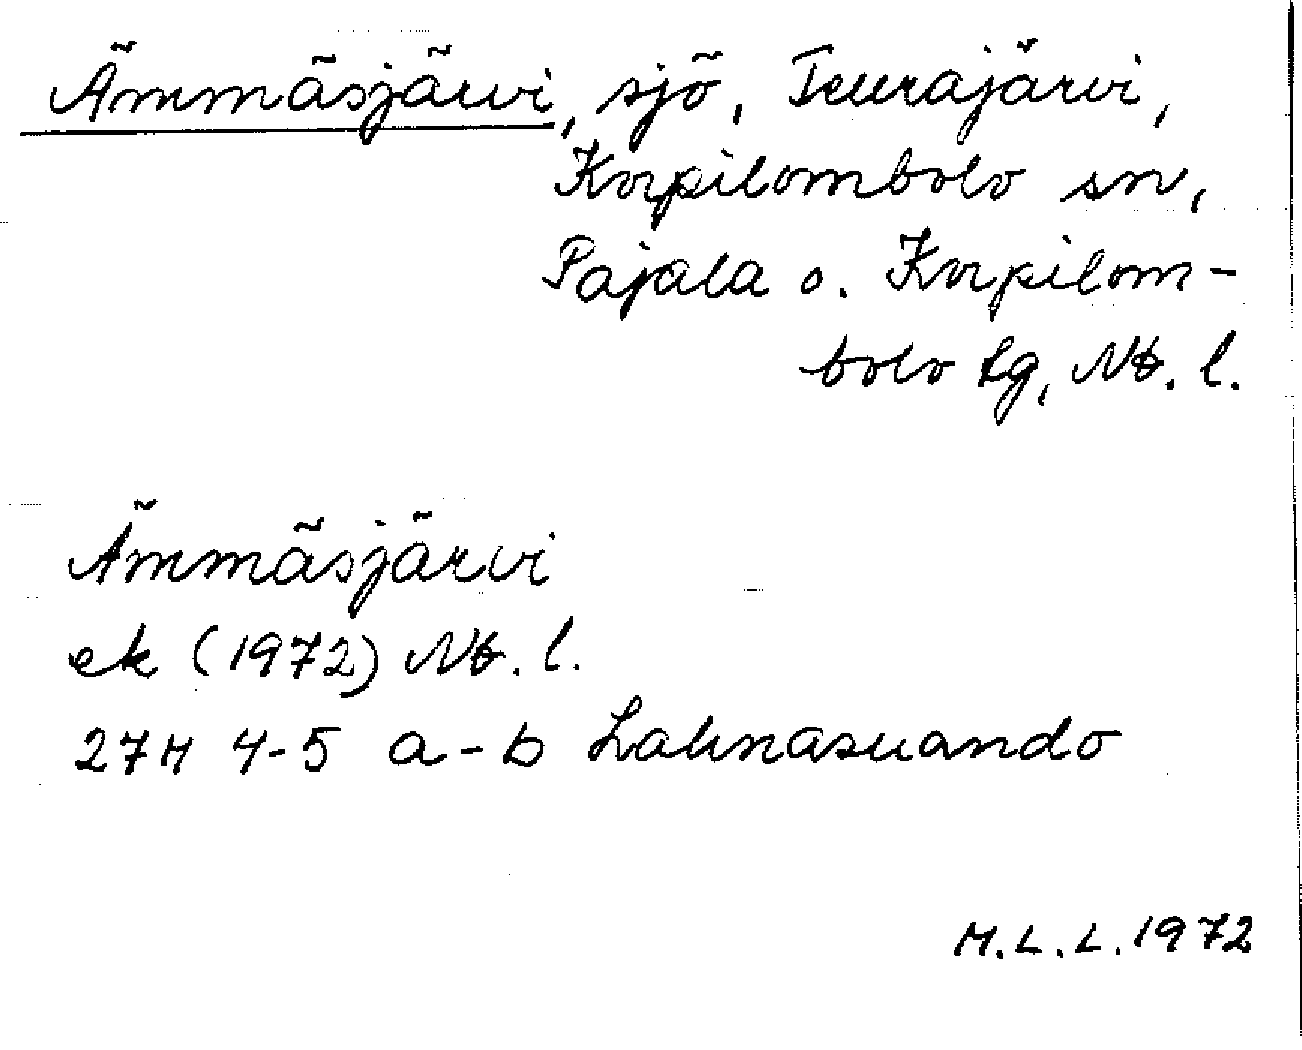 Ämmäsjärvi, sjö, Teurajärvi,
Korpilombolo sn,
Pajala o. Korpilom-
bolo tg, Nb. l.
Ämmäsjärvi
ek (1972) Nb. l.
27M 4-5 a-b Lahnasuando
M.L.L. 1972